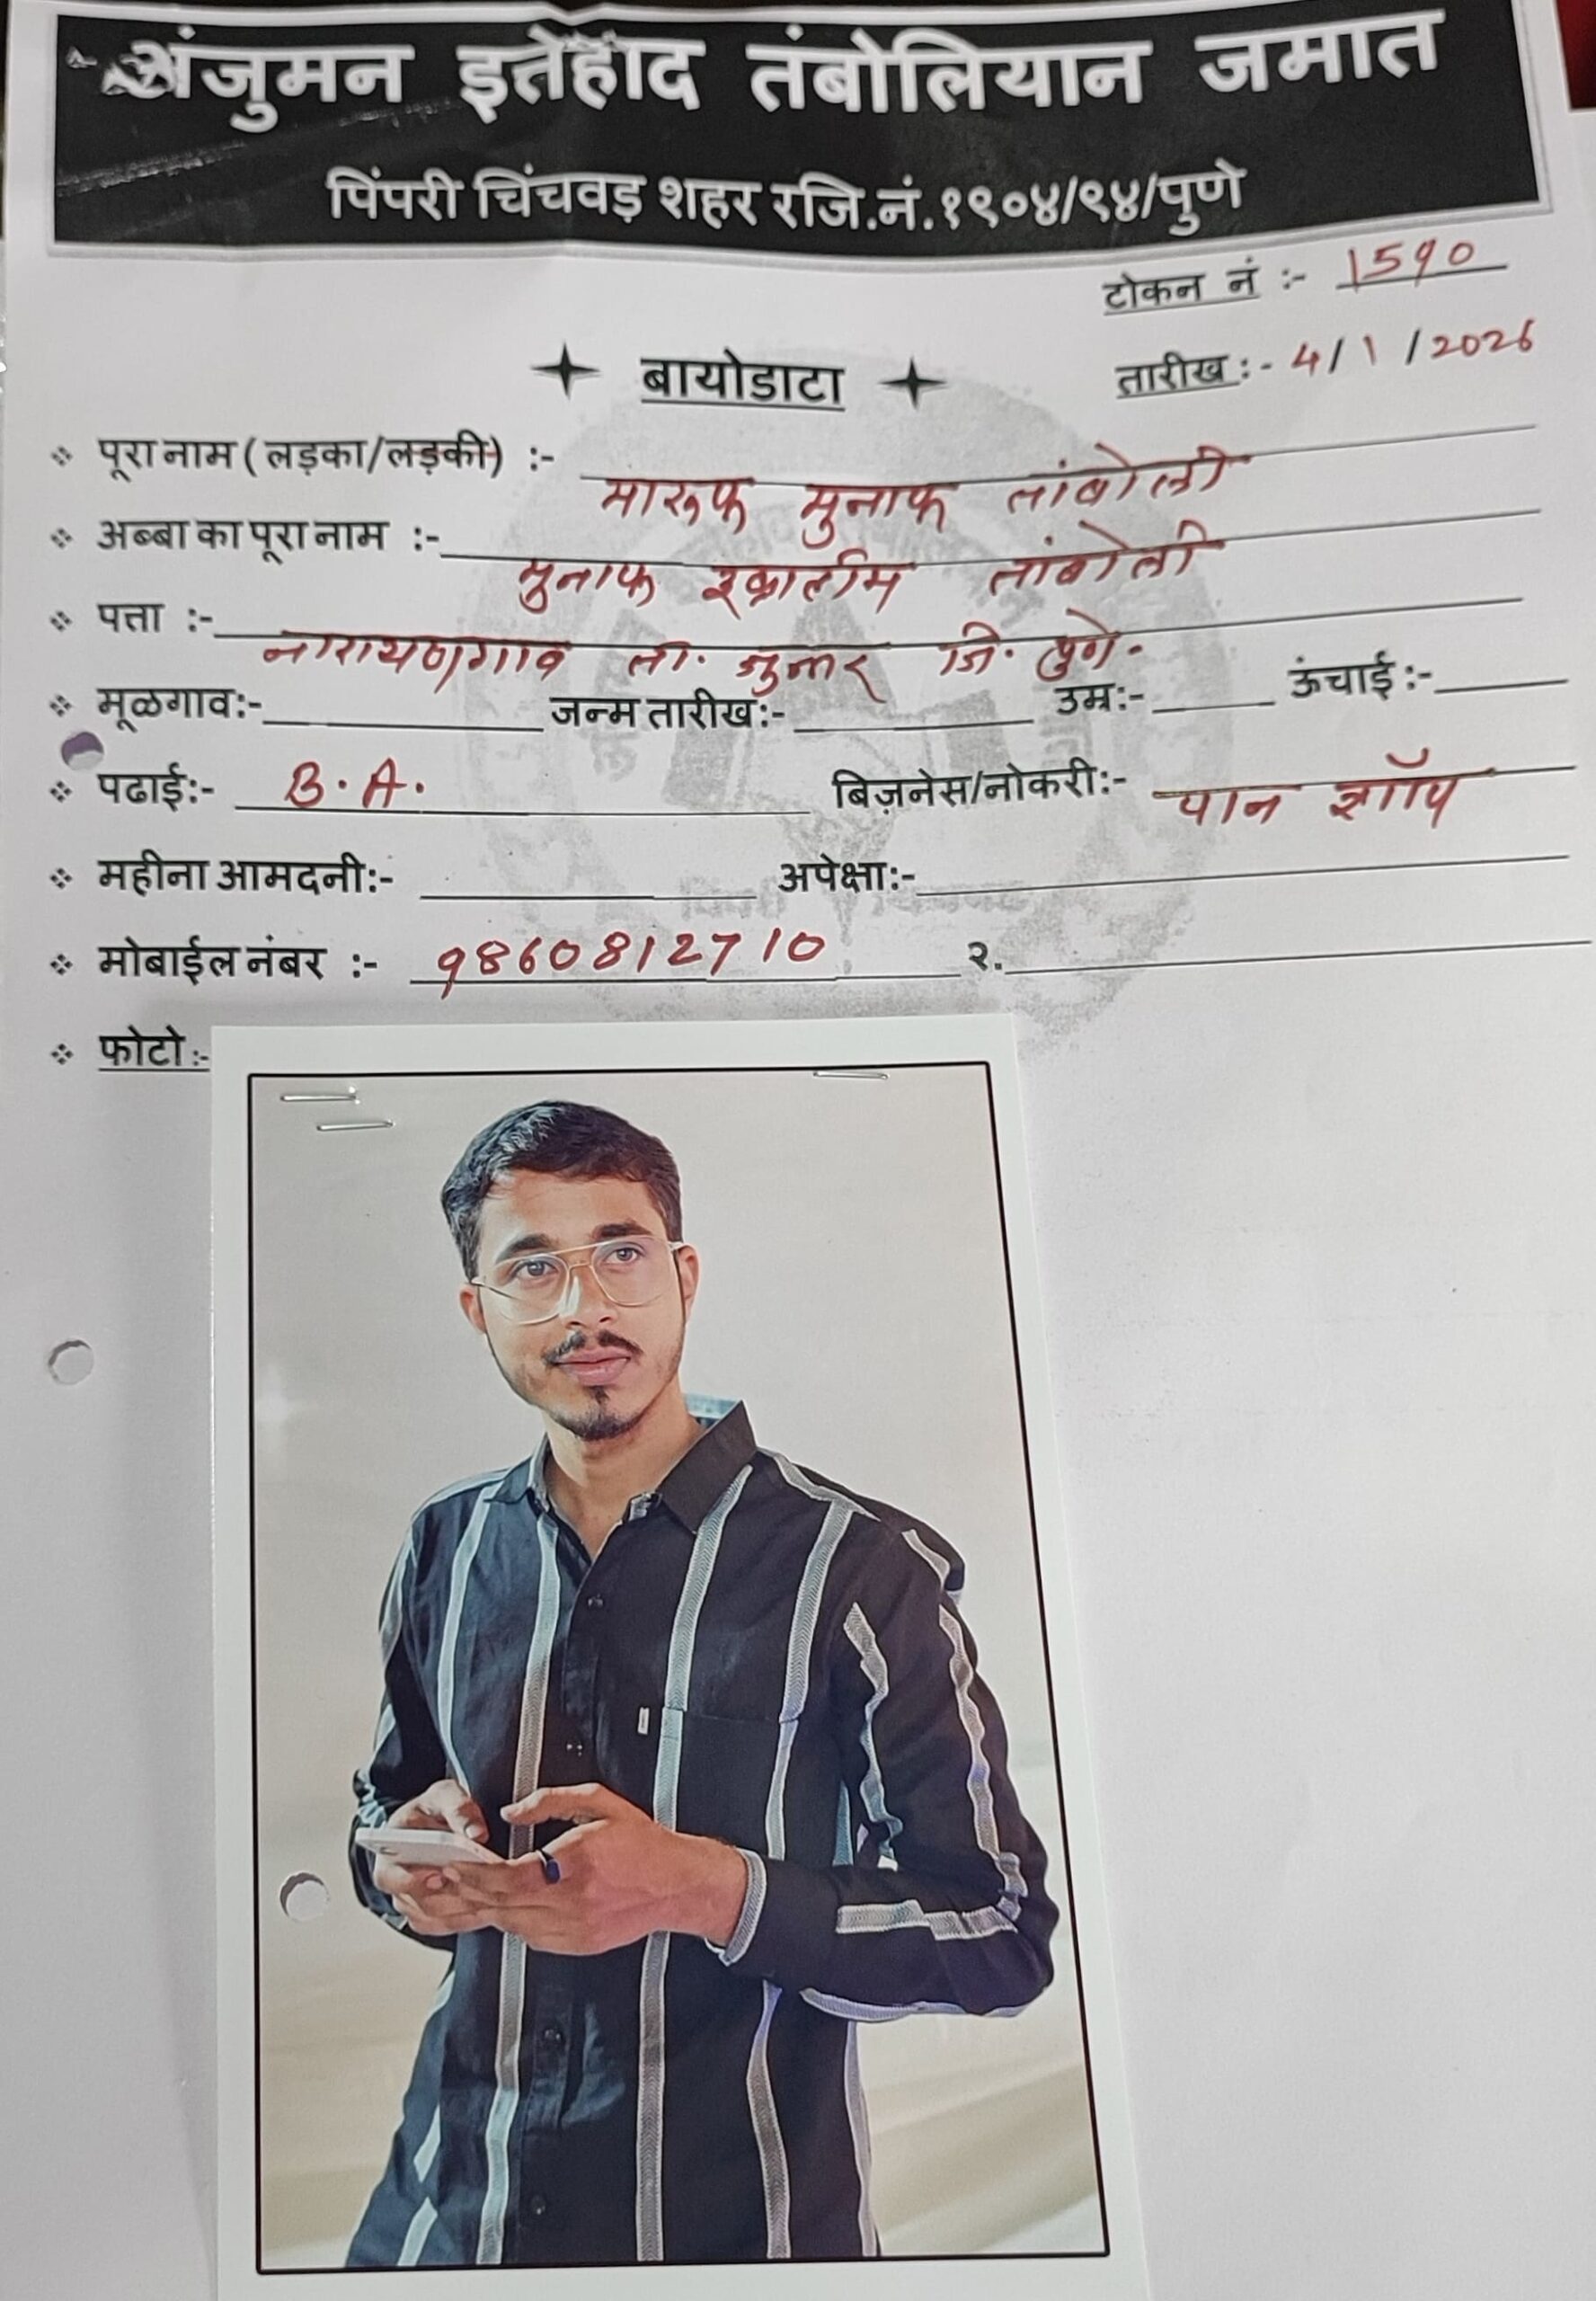 अंजुमन इत्तेहाद तंबोलियान जमात
पिंपरी चिंचवड़ शहर रजि.नं.१९०४/९४/पुणे
टोकन नं :- 1590
तारीख :- 4/1/2026
बायोडाटा
पूरा नाम ( लड़का/लड़की) :- मारुफ मुनाफ तांबोली
अब्बा का पूरा नाम :- मुनाफ तांबोली
पत्ता :- नारायणगाव ता. जुन्नर जि. पुणे.
मूळगाव:- जन्म तारीख:- उम्र:- ऊंचाई :-
पढाई:- B.A. बिज़नेस/नोकरी:- पान शॉप
महीना आमदनी:- अपेक्षा:-
मोबाईल नंबर :- 9860812710 २.
फोटो :-